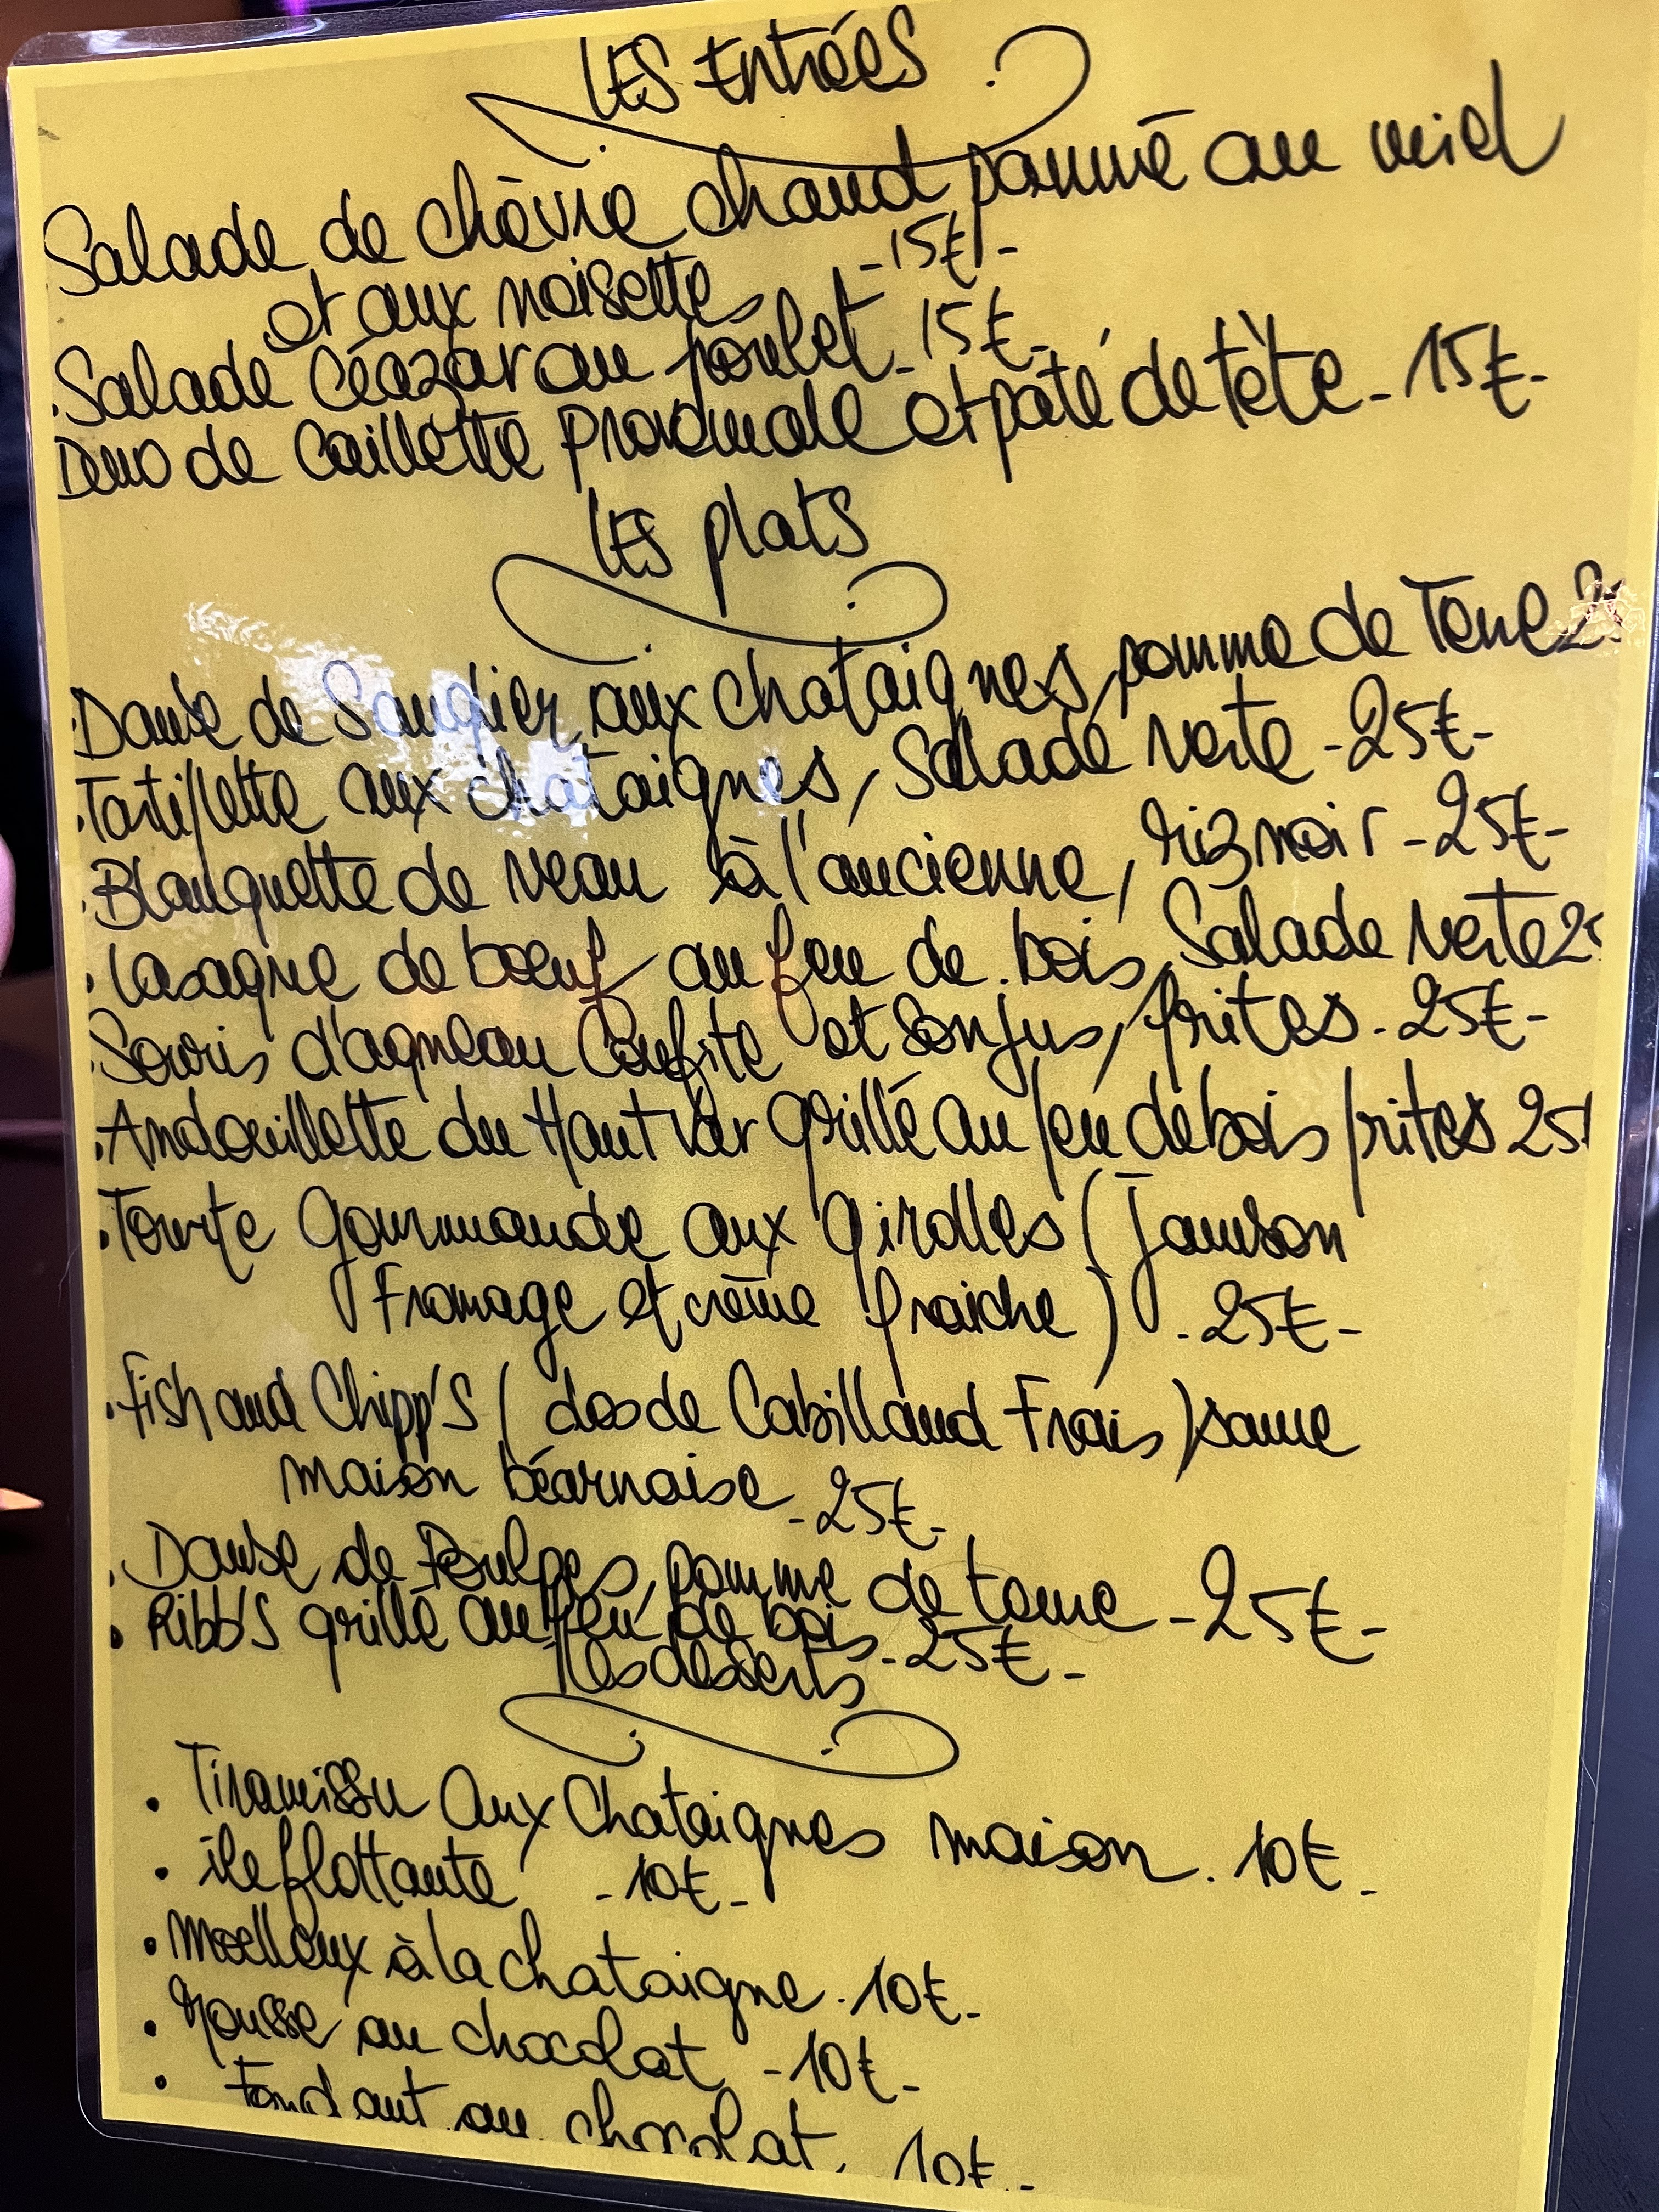 LES Entrées
Salade de chèvre chaud panné au miel
et aux noisettes -15€-
Salade Céazar au poulet - 15€-
Duo de Caillette provençale et pâté de tête - 15€-
LES plats
Daube de Sanglier aux chataignes, pomme de Terre 2
Tartiflette aux chataignes, Salade verte - 25€-
Blanquette de veau à l'ancienne, riz noir - 25€-
Lasagne de boeuf au feu de bois, Salade verte 2
Souris d'agneau Confite et Son jus, frites - 25€-
Andouillette du Haut Var grillé au feu de bois frites 25
Tourte Gourmande aux girolles (Jambon
Fromage et crème fraiche) - 25€-
Fish and Chipp's (dos de Cabillaud Frais) sauce
maison béarnaise - 25€-
Daube de Poulpes, pomme de terre - 25€-
Ribb's grillé au feu de bois - 25€-
Les desserts
Tiramissu Aux Chataignes maison. 10€-
ile flottante - 10€-
Moelleux à la chataigne. 10€-
Mousse au chocolat - 10€-
Fondant au chocolat. 10€-